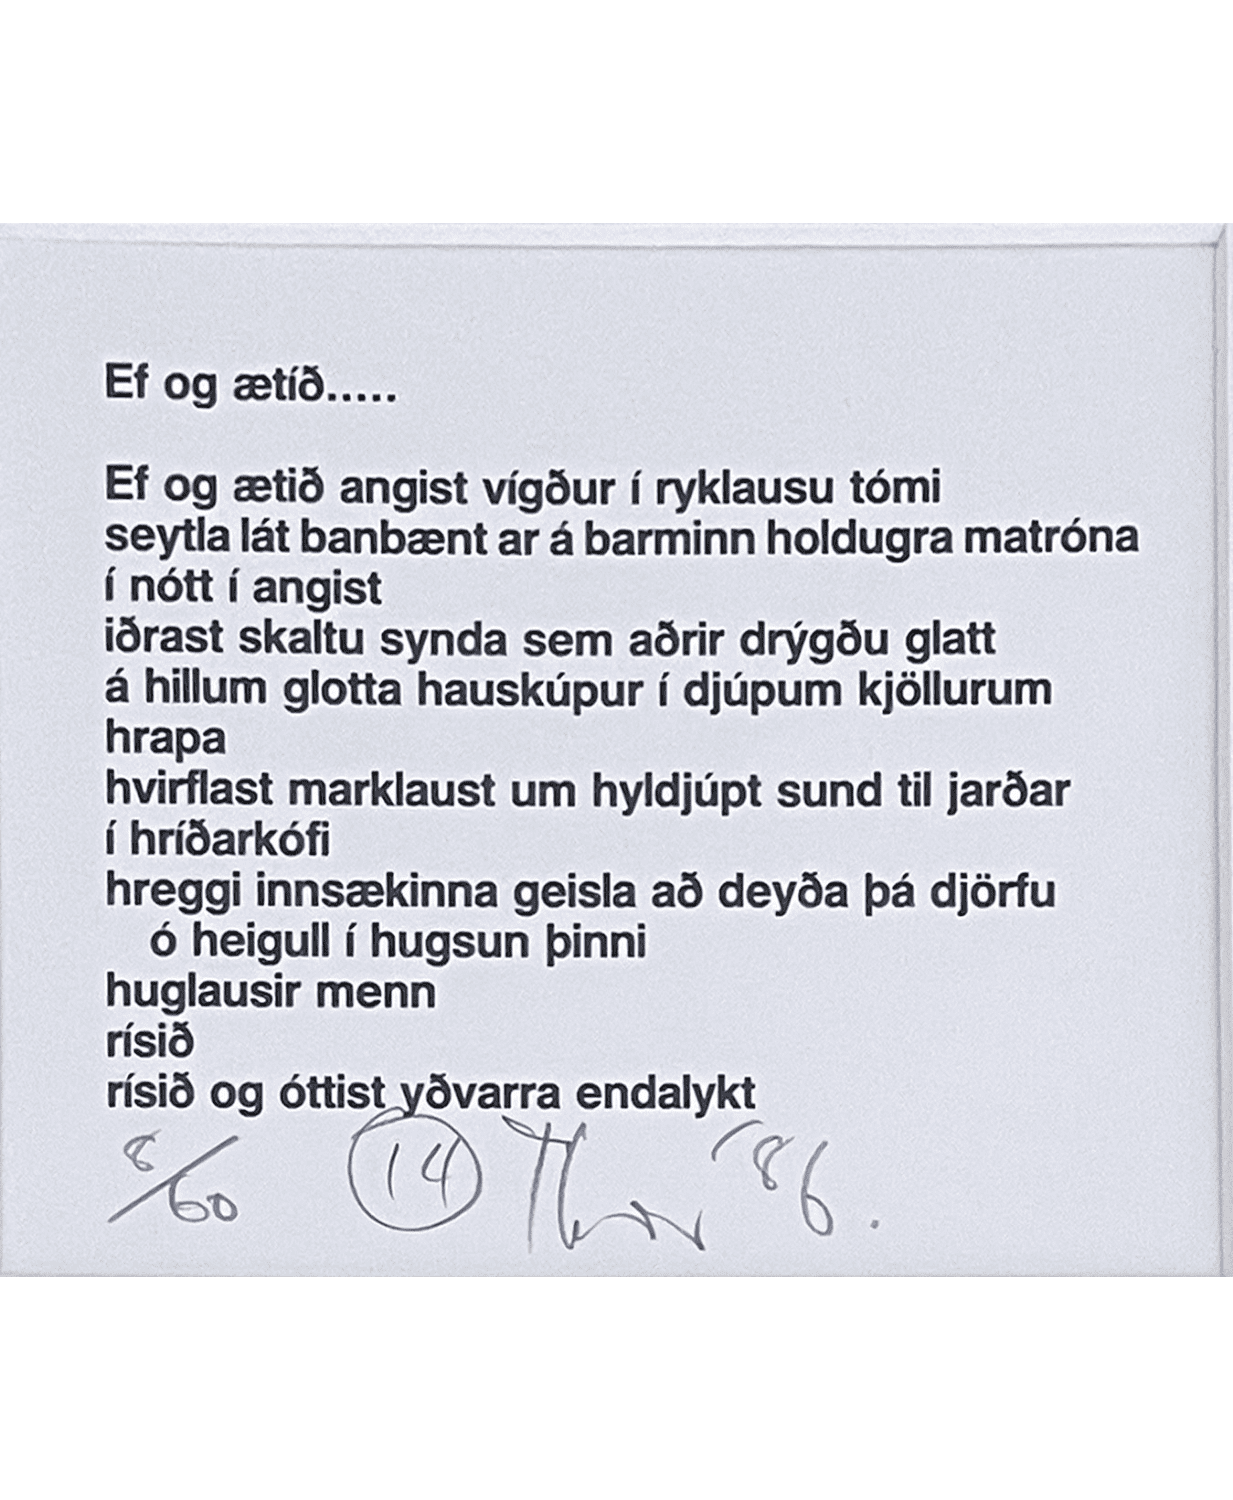 Ef og ætíð.....
Ef og ætið angist vígður í ryklausu tómi
seytla lát banbænt ar á barminn holdugra matróna
í nótt í angist
iðrast skaltu synda sem aðrir drýgðu glatt
á hillum glotta hauskúpur í djúpum kjöllurum
hrapa
hvirflast marklaust um hyldjúpt sund til jarðar
í hríðarkófi
hreggi innsækinna geisla að deyða þá djörfu
ó heigull í hugsun þinni
huglausir menn
rísið
rísið og óttist yðvarra endalykt
8/60 14 '86.